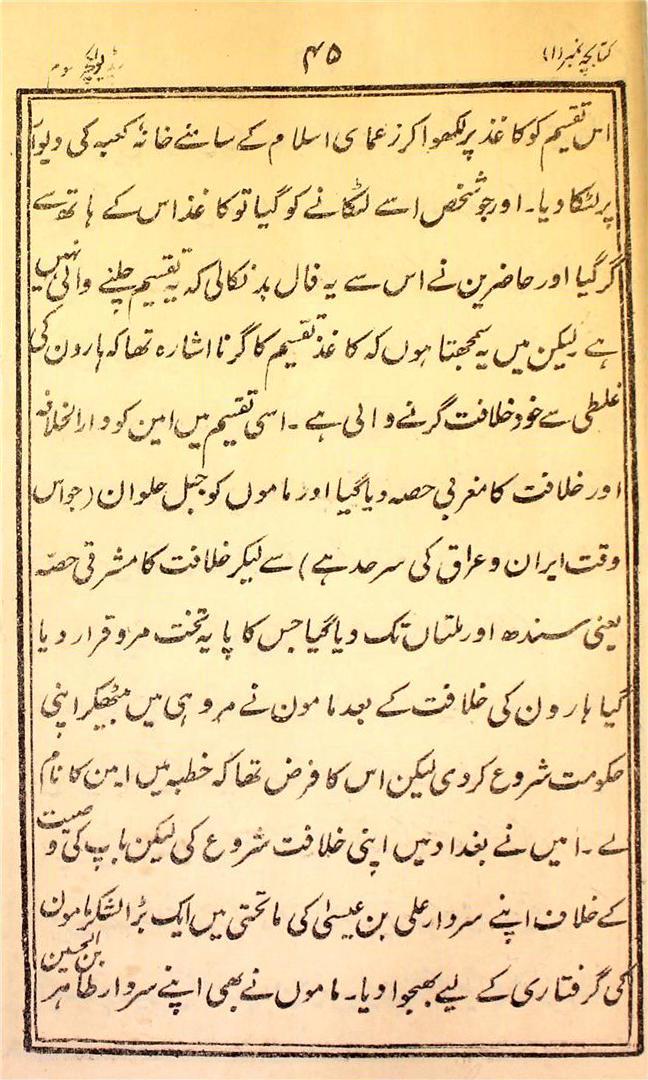 کتابچہ نمبر (۱) ۴۵ سوم
اس تقسیم کو کاغذ پر لکھوا کر زعمای اسلام کے سامنے خانۂ کعبہ کی دیوار
پر لٹکا دیا۔ اور جو شخص اسے لٹکانے کو گیا تو کاغذ اس کے ہاتھ سے
گر گیا اور حاضرین نے اس سے یہ فال بد نکالی کہ یہ تقسیم چلنے والی نہیں
ہے لیکن میں یہ سمجھتا ہوں کہ کاغذ تقسیم کا گرنا اشارہ تھا کہ ہارون کی
غلطی سے خود خلافت گرنے والی ہے۔ اسی تقسیم میں امین کو دارالخلافہ
اور خلافت کا مغربی حصہ دیا گیا اور ماموں کو جبل حلوان (جو اس
وقت ایران و عراق کی سرحد ہے) سے لیکر خلافت کا مشرقی حصّہ
یعنی سندھ اور ملتاں تک دیا گیا جس کا پایہ تخت مرو قرار دیا
گیا ہارون کی خلافت کے بعد مامون نے مرو ہی میں بیٹھکر اپنی
حکومت شروع کر دی لیکن اس کا فرض تھا کہ خطبہ میں امین کا نام
لے۔ امیں نے بغداد میں اپنی خلافت شروع کی لیکن باپ کی وصیت
کے خلاف اپنے سردار علی بن عیسیٰ کی ماتحتی میں ایک بڑا لشکر مامون
کی گرفتاری کے لیے بھجوا دیا۔ ماموں نے بھی اپنے سردار طاہر بن الحسین